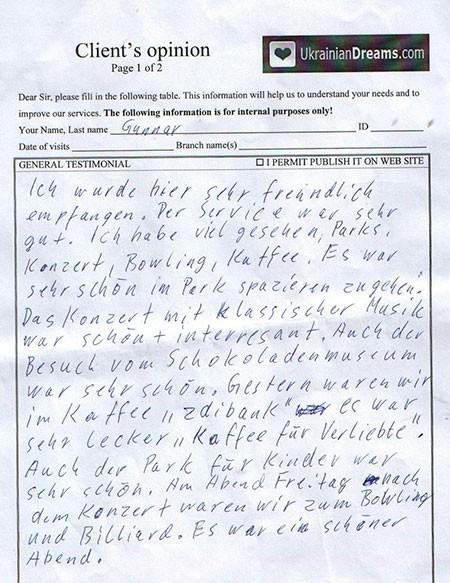 Client's opinion
Page 1 of 2
UkrainianDreams.com
Dear Sir, please fill in the following table. This information will help us to understand your needs and to
improve our services. The following information is for internal purposes only!
Your Name, Last name Gunnar ID
Date of visits Branch name(s)
GENERAL TESTIMONIAL ☐ I PERMIT PUBLISH IT ON WEB SITE
Ich wurde hier sehr freundlich
empfangen. Der Service war sehr
gut. Ich habe viel gesehen, Parks,
Konzert, Bowling, Kaffee. Es war
sehr schön im Park spazieren zugehen.
Das Konzert mit klassischer Musik
war schön + interresant. Auch der
Besuch vom Schokoladenmuseum
war sehr schön. Gestern waren wir
im Kaffee „zdibank" es war
sehr lecker „Kaffee für Verliebte".
Auch der Park für Kinder war
sehr schön. Am Abend Freitag nach
dem Konzert waren wir zum Bowling
und Billiard. Es war ein schöner
Abend.